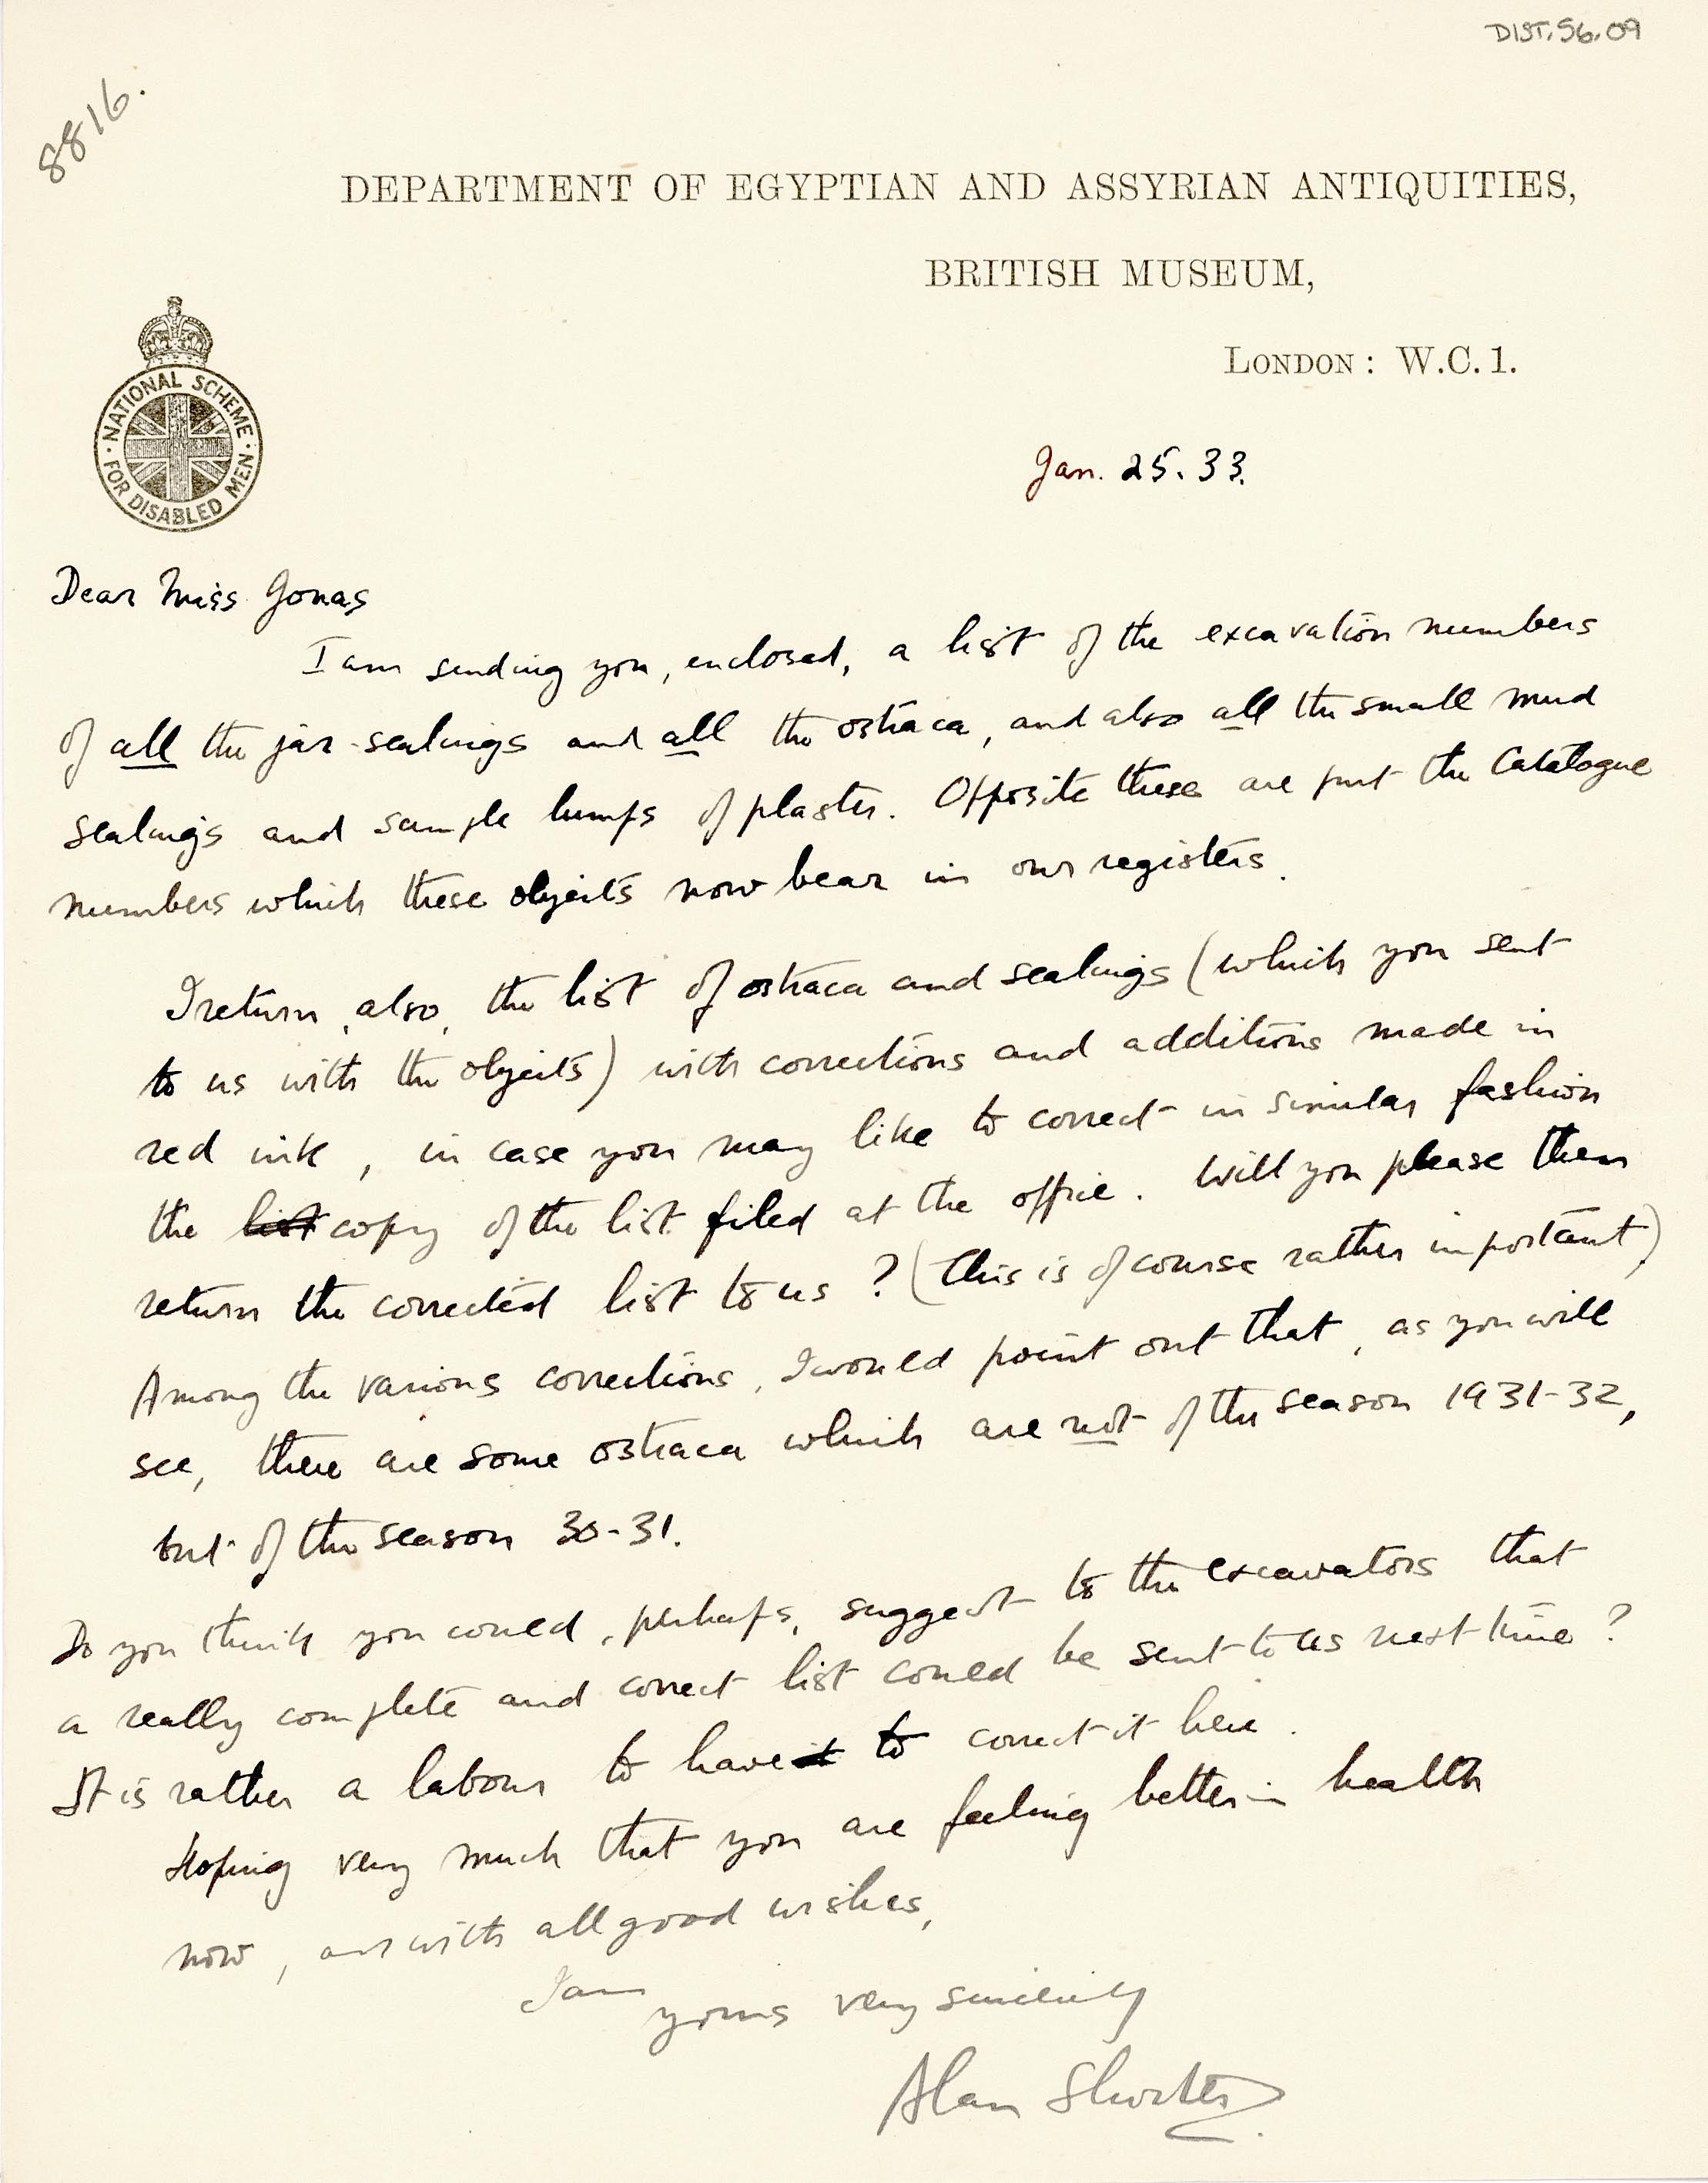 DIST.56.09
8816.
DEPARTMENT OF EGYPTIAN AND ASSYRIAN ANTIQUITIES,
BRITISH MUSEUM,
LONDON: W.C.1.
NATIONAL SCHEME
FOR DISABLED MEN
Jan. 25. 33.
Dear Miss Jonas
I am sending you, enclosed, a list of the excavation numbers
of all the jar-sealings and all the ostraca, and also all the small mud
sealings and sample lumps of plaster. Opposite these are put the Catalogue
numbers which these objects now bear in our registers.
I return, also, the list of ostraca and sealings (which you sent
to us with the objects) with corrections and additions made in
red ink, in case you may like to correct in similar fashion
the list copy of the list filed at the office. Will you please then
return the corrected list to us? (This is of course rather important)
Among the various corrections, I would point out that, as you will
see, there are some ostraca which are not of the season 1931-32,
but of the season 30-31.
Do you think you could, perhaps, suggest to the excavators that
a really complete and correct list could be sent to us next time?
It is rather a labour to have it to correct it here.
Hoping very much that you are feeling better in health
now, and with all good wishes,
I am
yours very sincerely
Alan Shorter.